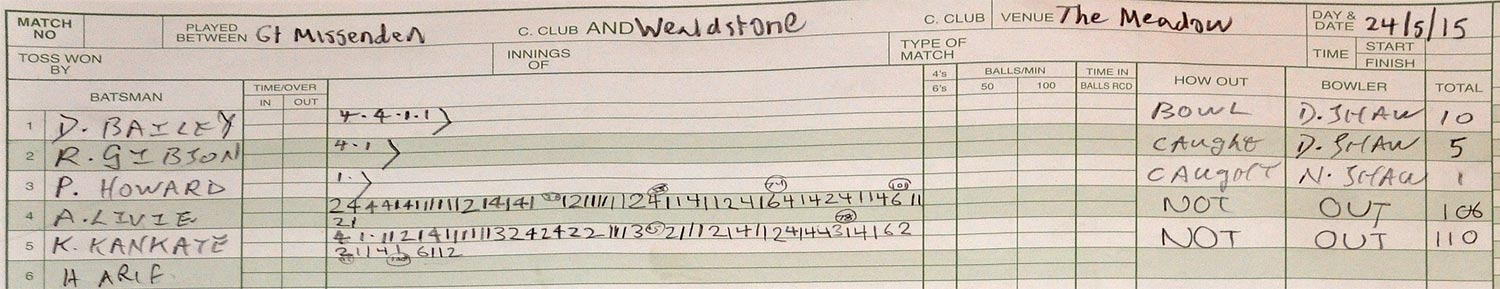 MATCH NO PLAYED BETWEEN Gt Missenden C. CLUB AND Wealdstone C. CLUB VENUE The Meadow DAY & DATE 24/5/15
TOSS WON BY INNINGS OF TYPE OF MATCH TIME START FINISH
BATSMAN TIME/OVER IN OUT 4's 6's BALLS/MIN 50 100 TIME IN BALLS RCD HOW OUT BOWLER TOTAL
1 D. BAILEY 4.4.1.1 BOWL D. SHAW 10
2 R. GIBSON 4.1 CAUGHT D. SHAW 5
3 P. HOWARD 1. CAUGHT N. SHAW 1
4 A. LIVIE NOT OUT 106
21
5 K. KANKATE NOT OUT 110
6 H ARIF